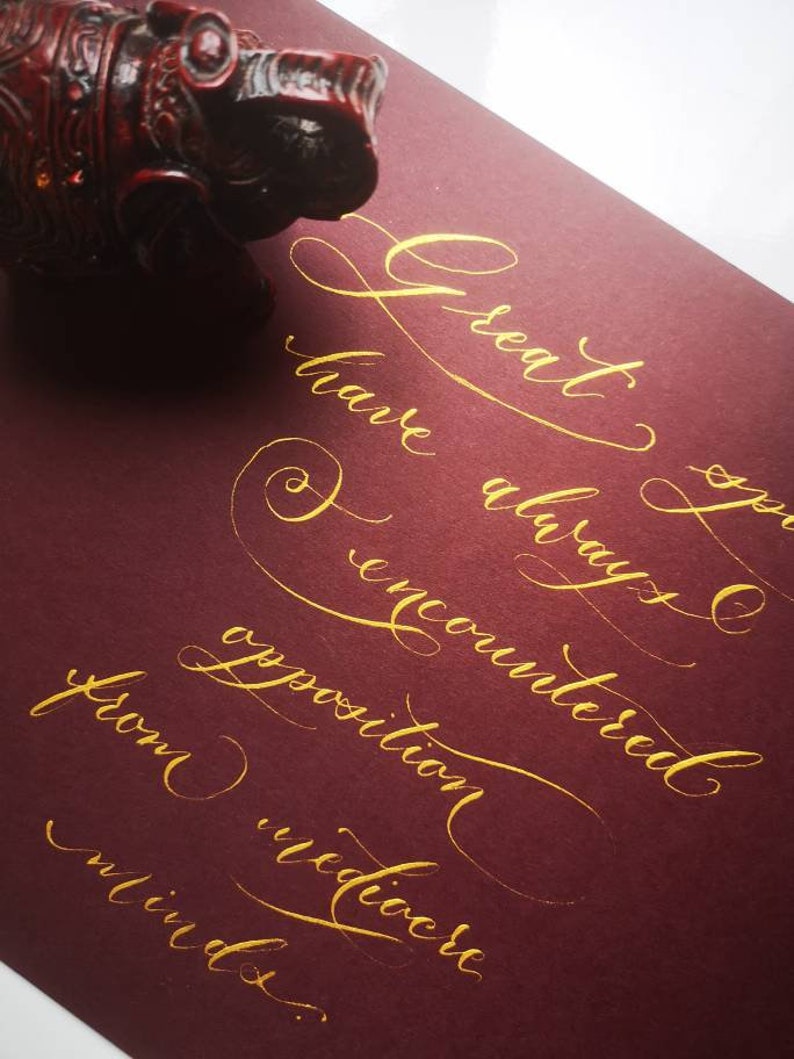 Great spi
have always
encountered
opposition
from mediocre
minds.